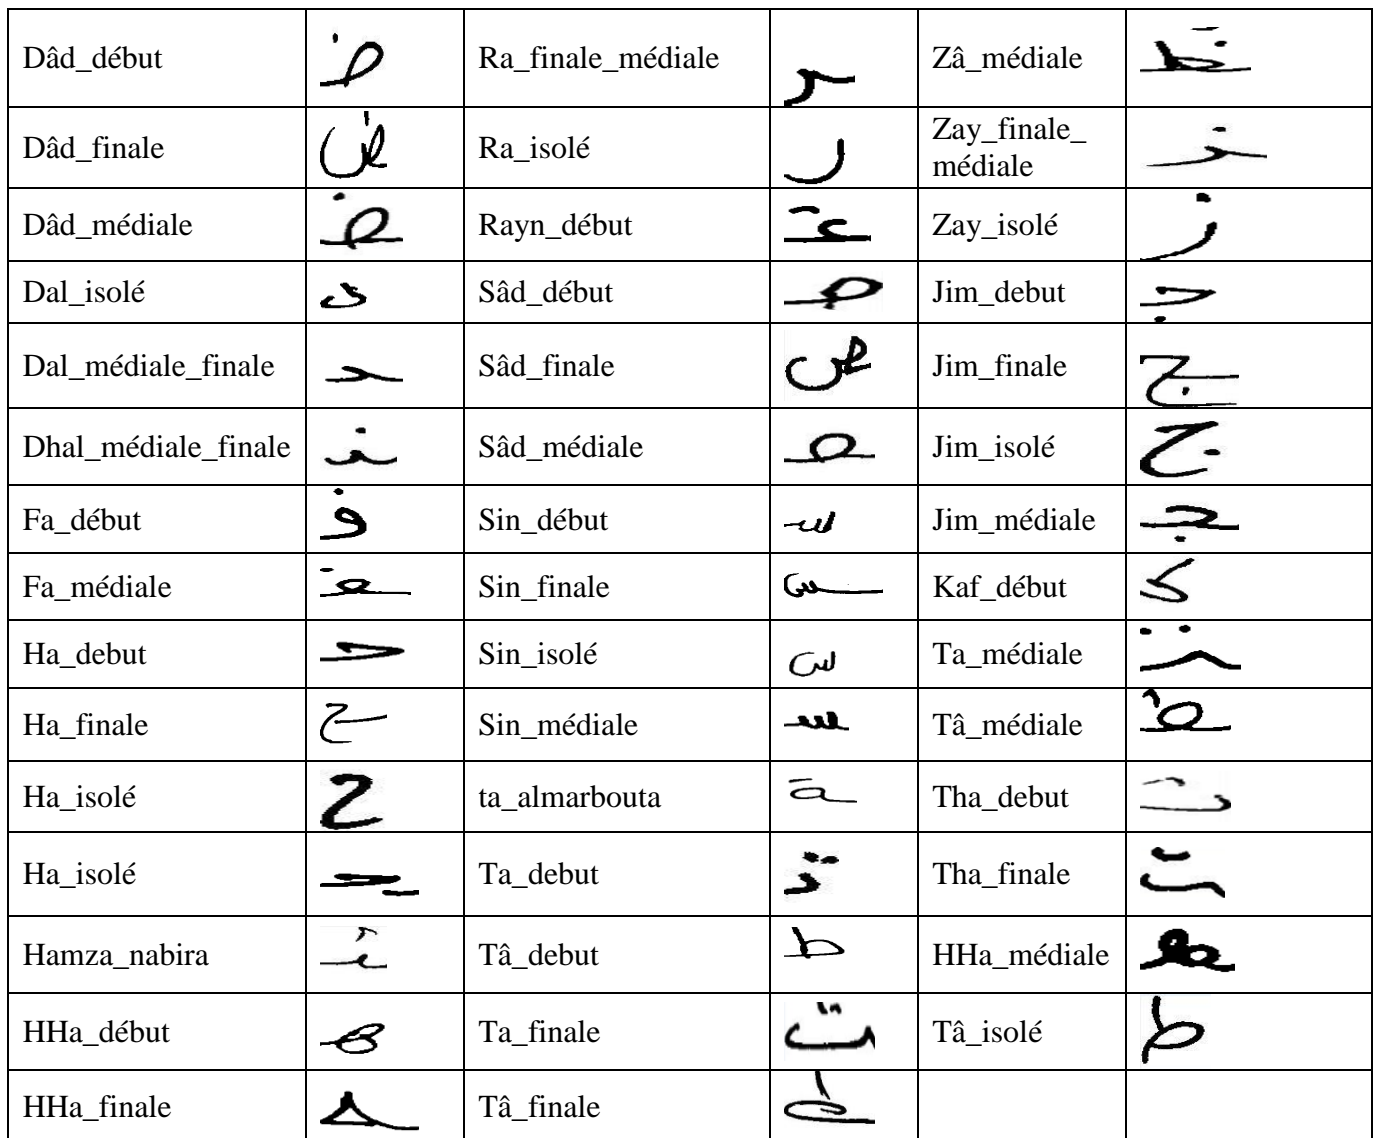 Dâd_début ضـ Ra_finale_médiale ـر Zâ_médiale ـظـ
Dâd_finale ـض Ra_isolé ر Zay_finale_
médiale ـز
Dâd_médiale ـضـ Rayn_début غـ Zay_isolé ز
Dal_isolé د Sâd_début صـ Jim_debut جـ
Dal_médiale_finale ـد Sâd_finale ـص Jim_finale ـج
Dhal_médiale_finale ـذ Sâd_médiale ـصـ Jim_isolé ج
Fa_début فـ Sin_début سـ Jim_médiale ـجـ
Fa_médiale ـفـ Sin_finale ـس Kaf_début كـ
Ha_debut حـ Sin_isolé س Ta_médiale ـتـ
Ha_finale ـح Sin_médiale ـسـ Tâ_médiale ـطـ
Ha_isolé ح ta_almarbouta ـة Tha_debut ثـ
Ha_isolé Ta_debut تـ Tha_finale ـث
Hamza_nabira ـئـ Tâ_debut طـ HHa_médiale ـهـ
HHa_début هـ Ta_finale ـت Tâ_isolé ط
HHa_finale ـه Tâ_finale ـط